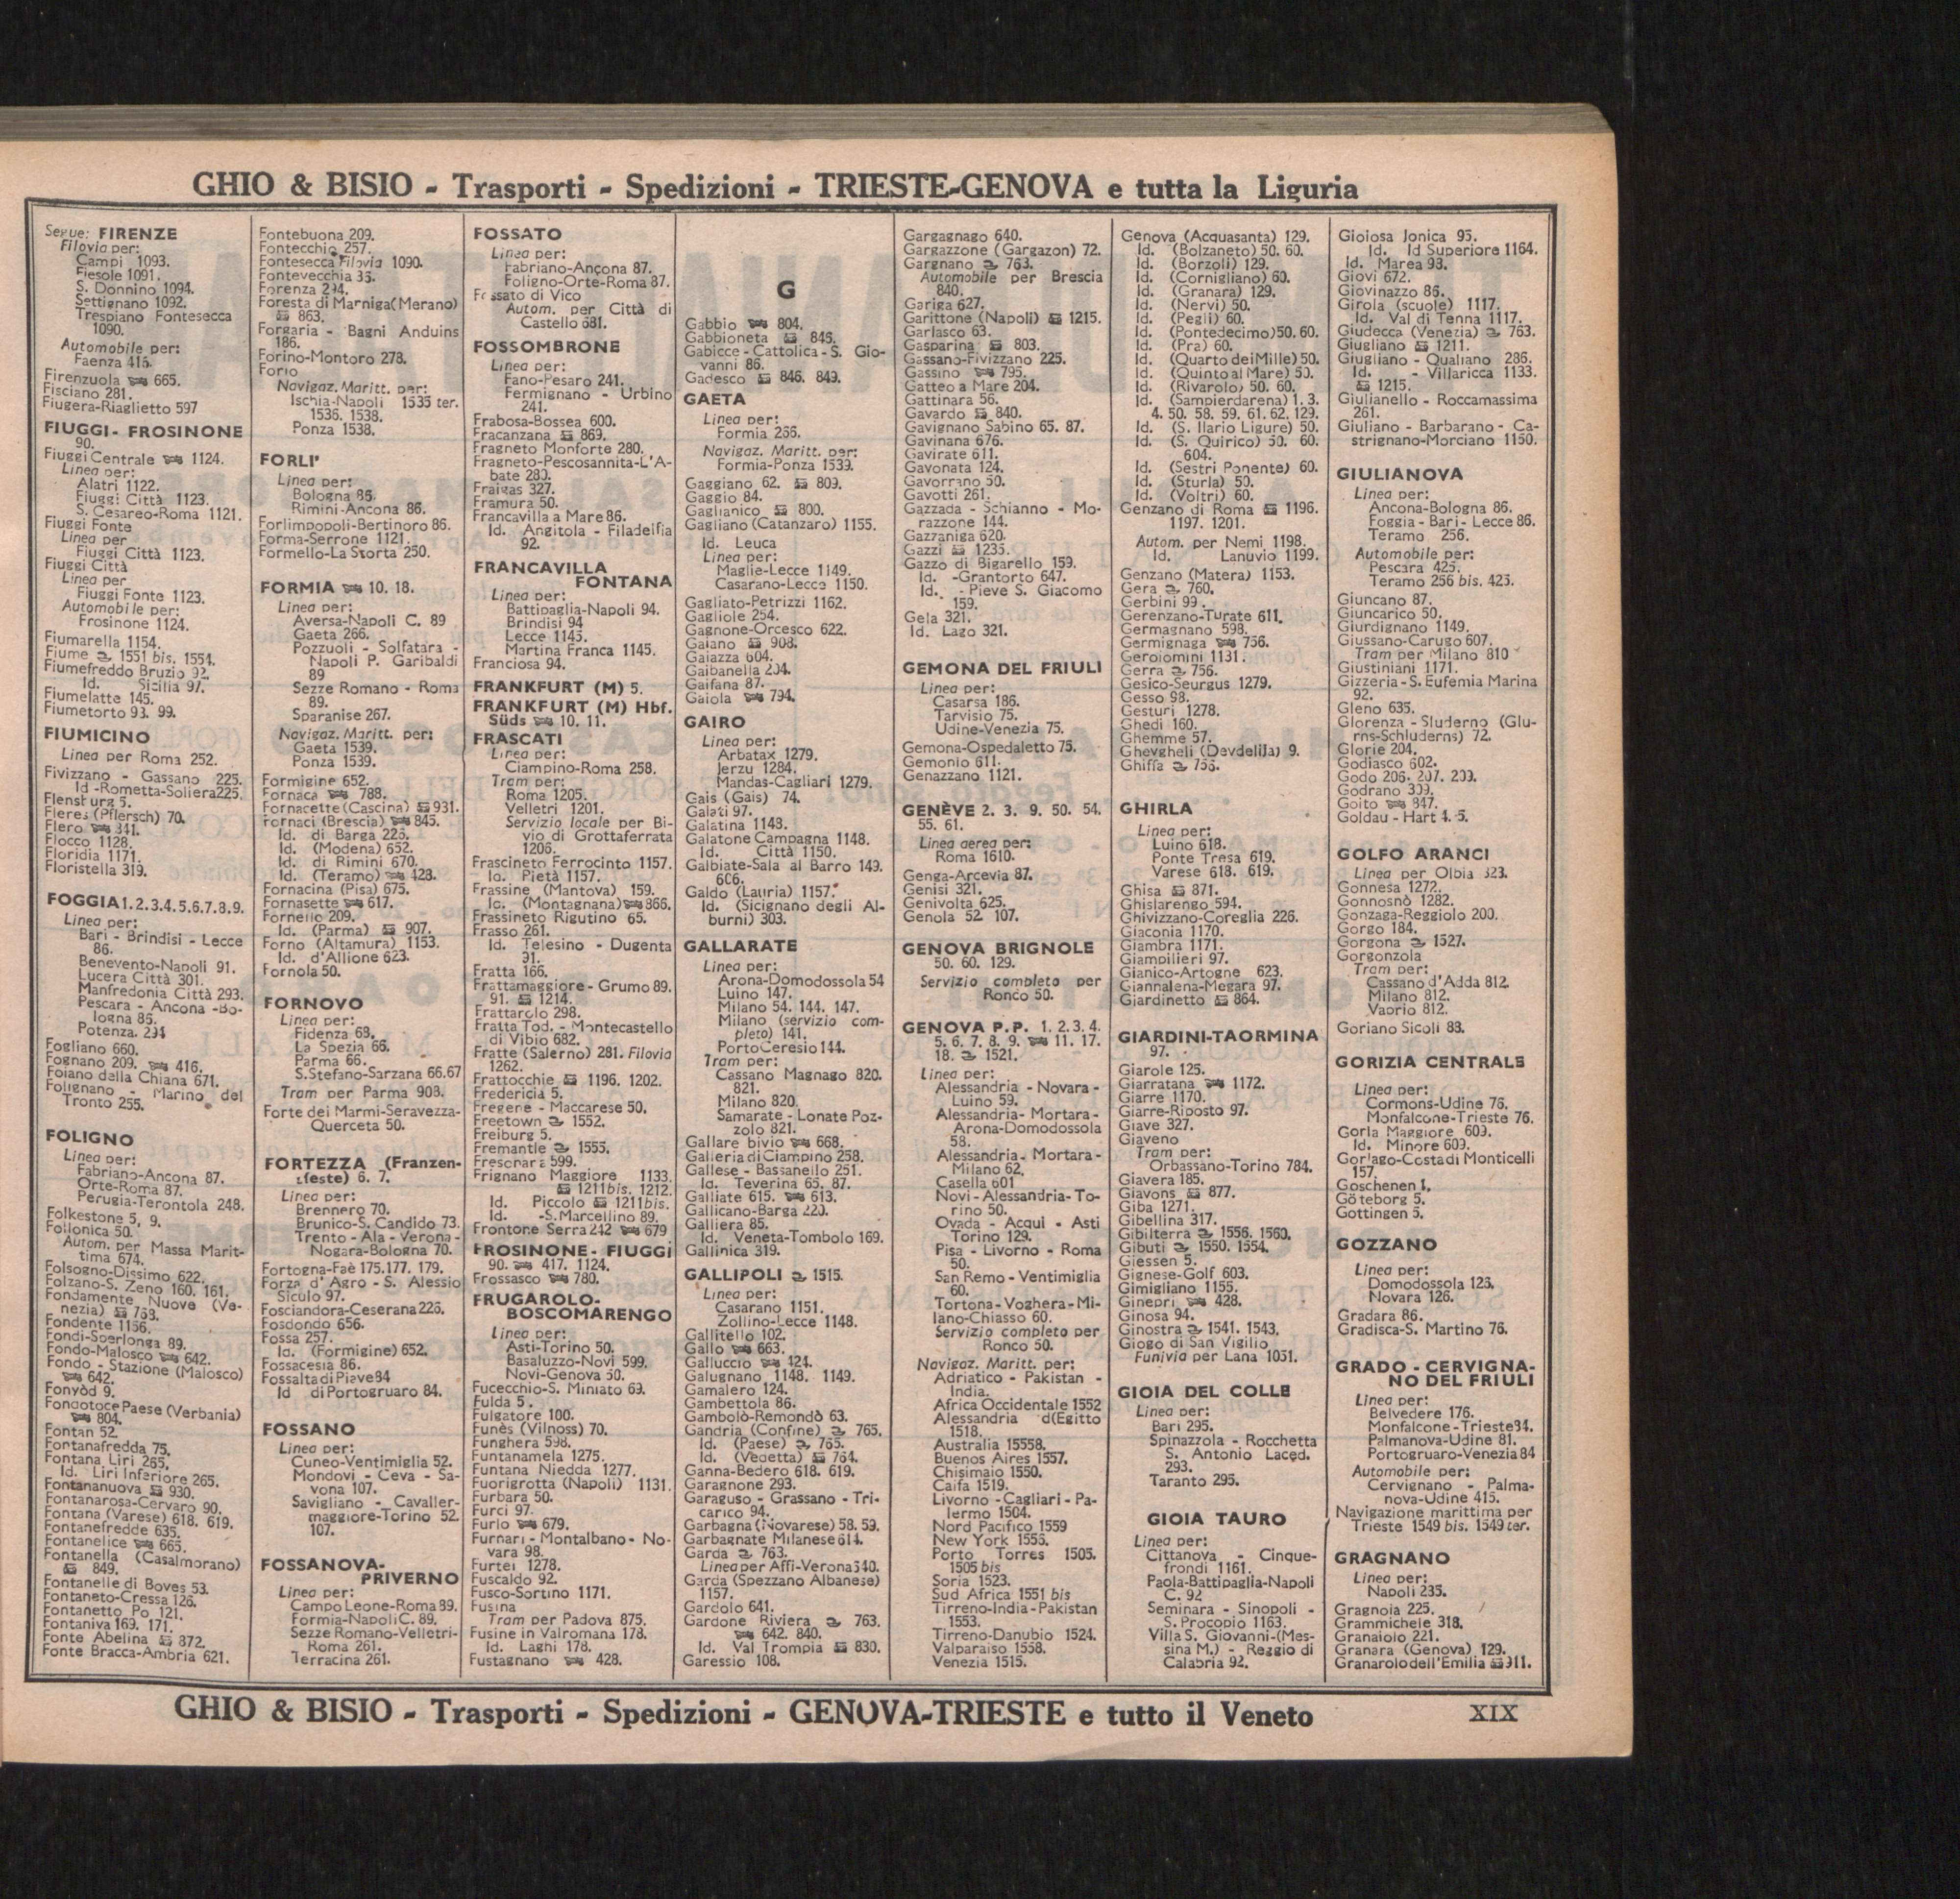 GHIO & BISIO - Trasporti - Spedizioni - TRIESTE-GENOVA e tutta la Liguria
Segue: FIRENZE
Filovia per:
Campi 1093.
Fiesole 1091.
S. Donnino 1094.
Settignano 1092.
Trespiano Fontesecca
1090.
Automobile per:
Faenza 416.
Firenzuola 665.
Fisciano 281.
Fiugera-Riaglietto 597
FIUGGI - FROSINONE
90.
Fiuggi Centrale 1124.
Linea per:
Alatri 1122.
Fiuggi Città 1123.
S. Cesareo-Roma 1121.
Fiuggi Fonte
Linea per
Fiuggi Città 1123.
Fiuggi Città
Linea per
Fiuggi Fonte 1123.
Automobile per:
Frosinone 1124.
Fiumarella 1154.
Fiume 1551 bis. 1554.
Fiumefreddo Bruzio 92.
Id. Sicilia 97.
Fiumelatte 145.
Fiumetorto 93. 99.
FIUMICINO
Linea per Roma 252.
Fivizzano - Gassano 225.
Id -Rometta-Soliera 225.
Flensburg 5.
Fleres (Pflersch) 70.
Flero 841.
Flocco 1128.
Floridia 1171.
Floristella 319.
FOGGIA 1.2.3.4.5.6.7.8.9.
Linea per:
Bari - Brindisi - Lecce
86.
Benevento-Napoli 91.
Lucera Città 301.
Manfredonia Città 293.
Pescara - Ancona -Bo-
logna 86.
Potenza. 294
Fogliano 660.
Fognano 209. 416.
Foiano della Chiana 671.
Folignano - Marino del
Tronto 255.
FOLIGNO
Linea per:
Fabriano-Ancona 87.
Orte-Roma 87.
Perugia-Terontola 248.
Folkestone 5, 9.
Follonica 50.
Autom. per Massa Marit-
tima 674.
Folsogno-Dissimo 622.
Folzano-S. Zeno 160. 161.
Fondamente Nuove (Ve-
nezia) 763.
Fondente 1156.
Fondi-Sperlonga 89.
Fondo-Malosco 642.
Fondo - Stazione (Malosco)
642.
Fonyòd 9.
Fondotoce Paese (Verbania)
804.
Fontan 52.
Fontanafredda 75.
Fontana Liri 265.
Id. Liri Inferiore 265.
Fontananuova 930.
Fontanarosa-Cervaro 90.
Fontana (Varese) 618. 619.
Fontanefredde 635.
Fontanelice 665.
Fontanella (Casalmorano)
849.
Fontanelle di Boves 53.
Fontaneto-Cressa 126.
Fontanetto Po 121.
Fontaniva 169. 171.
Fonte Abelina 872.
Fonte Bracca-Ambria 621.
Fontebuona 209.
Fontecchio 257.
Fontesecca Filovia 1090.
Fontevecchia 35.
Forenza 294.
Foresta di Marniga (Merano)
863.
Forgaria - Bagni Anduins
186.
Forino-Montoro 278.
Forio
Navigaz. Maritt. per:
Ischia-Napoli 1535 ter.
1536. 1538.
Ponza 1538.
FORLI'
Linea per:
Bologna 86.
Rimini-Ancona 86.
Forlimpopoli-Bertinoro 86.
Forma-Serrone 1121.
Formello-La Storta 250.
FORMIA 10. 18.
Linea per:
Aversa-Napoli C. 89
Gaeta 266.
Pozzuoli - Solfatara -
Napoli P. Garibaldi
89
Sezze Romano - Roma
89.
Sparanise 267.
Navigaz. Maritt. per:
Gaeta 1539.
Ponza 1539.
Formigine 652.
Fornaca 788.
Fornacette (Cascina) 931.
Fornaci (Brescia) 845.
Id. di Barga 226.
Id. (Modena) 652.
Id. di Rimini 670.
Id. (Teramo) 428.
Fornacina (Pisa) 675.
Fornasette 617.
Fornello 209.
Id. (Parma) 907.
Forno (Altamura) 1153.
Id. d'Allione 623.
Fornola 50.
FORNOVO
Linea per:
Fidenza 68.
La Spezia 66.
Parma 66.
S. Stefano-Sarzana 66.67
Tram per Parma 908.
Forte dei Marmi-Seravezza-
Querceta 50.
FORTEZZA (Franzen-
zfeste) 6. 7.
Linea per:
Brennero 70.
Brunico-S. Candido 73.
Trento - Ala - Verona -
Nogara-Bologna 70.
Fortogna-Faè 175.177. 179.
Forza d' Agro - S. Alessio
Siculo 97.
Fosciandora-Ceserana 226.
Fosdondo 656.
Fossa 257.
Id. (Formigine) 652.
Fossacesia 86.
Fossalta di Piave 84
Id di Portogruaro 84.
FOSSANO
Linea per:
Cuneo-Ventimiglia 52.
Mondovi - Ceva - Sa-
vona 107.
Savigliano - Cavaller-
maggiore-Torino 52.
107.
FOSSANOVA-
PRIVERNO
Linea per:
Campo Leone-Roma 89.
Formia-Napoli C. 89.
Sezze Romano-Velletri-
Roma 261.
Terracina 261.
FOSSATO
Linea per:
Fabriano-Ancona 87.
Foligno-Orte-Roma 87.
Fossato di Vico
Autom. per Città di
Castello 681.
FOSSOMBRONE
Linea per:
Fano-Pesaro 241.
Fermignano - Urbino
241.
Frabosa-Bossea 600.
Fracanzana 869.
Fragneto Monforte 280.
Fragneto-Pescosannita-L'A-
bate 280.
Fraigas 327.
Framura 50.
Francavilla a Mare 86.
Id. Angitola - Filadelfia
92.
FRANCAVILLA
FONTANA
Linea per:
Battipaglia-Napoli 94.
Brindisi 94
Lecce 1145.
Martina Franca 1145.
Franciosa 94.
FRANKFURT (M) 5.
FRANKFURT (M) Hbf.
Süds 10. 11.
FRASCATI
Linea per:
Ciampino-Roma 258.
Tram per:
Roma 1205.
Velletri 1201.
Servizio locale per Bi-
vio di Grottaferrata
1206.
Frascineto Ferrocinto 1157.
Id. Pietà 1157.
Frassine (Mantova) 159.
Id. (Montagnana) 866.
Frassineto Rigutino 65.
Frasso 261.
Id. Telesino - Dugenta
91.
Fratta 166.
Frattamaggiore - Grumo 89.
91. 1214.
Frattarolo 298.
Fratta Tod. - Montecastello
di Vibio 682.
Fratte (Salerno) 281. Filovia
1262.
Frattocchie 1196. 1202.
Fredericia 5.
Fregene - Maccarese 50.
Freetown 1552.
Freiburg 5.
Fremantle 1555.
Fresonara 599.
Frignano Maggiore 1133.
1211bis. 1212.
Id. Piccolo 1211bis.
Id. -S. Marcellino 89.
Frontone Serra 242 679
FROSINONE - FIUGGI
90. 417. 1124.
Frossasco 780.
FRUGAROLO-
BOSCOMARENGO
Linea per:
Asti-Torino 50.
Basaluzzo-Novi 599.
Novi-Genova 50.
Fucecchio-S. Miniato 69.
Fulda 5.
Fulgatore 100.
Funès (Vilnoss) 70.
Funghera 598.
Funtanamela 1275.
Funtana Niedda 1277.
Fuorigrotta (Napoli) 1131.
Furbara 50.
Furci 97.
Furlo 679.
Furnari - Montalbano - No-
vara 98.
Furtei 1278.
Fuscaldo 92.
Fusco-Sortino 1171.
Fusina
Tram per Padova 875.
Fusine in Valromana 178.
Id. Laghi 178.
Fustagnano 428.
G
Gabbio 804.
Gabbioneta 846.
Gabicce - Cattolica - S. Gio-
vanni 86.
Gadesco 846. 849.
GAETA
Linea per:
Formia 266.
Navigaz. Maritt. per:
Formia-Ponza 1539.
Gaggiano 62. 809.
Gaggio 84.
Gaglianico 800.
Gagliano (Catanzaro) 1155.
Id. Leuca
Linea per:
Maglie-Lecce 1149.
Casarano-Lecce 1150.
Gagliato-Petrizzi 1162.
Gagliole 254.
Gagnone-Orcesco 622.
Gaiano 908.
Gaiazza 604.
Gaibanella 204.
Gaifana 87.
Gaiola 794.
GAIRO
Linea per:
Arbatax 1279.
Jerzu 1284.
Mandas-Cagliari 1279.
Gais (Gais) 74.
Galati 97.
Galatina 1148.
Galatone Campagna 1148.
Id. Città 1150.
Galbiate-Sala al Barro 149.
606.
Galdo (Lauria) 1157.
Id. (Sicignano degli Al-
burni) 303.
GALLARATE
Linea per:
Arona-Domodossola 54
Luino 147.
Milano 54. 144. 147.
Milano (servizio com-
pleto) 141.
Porto Ceresio 144.
Tram per:
Cassano Magnago 820.
821.
Milano 820.
Samarate - Lonate Poz-
zolo 821.
Gallare bivio 668.
Galleria di Ciampino 258.
Gallese - Bassanello 251.
Id. Teverina 65. 87.
Galliate 615. 613.
Gallicano-Barga 220.
Galliera 85.
Id. Veneta-Tombolo 169.
Gallinica 319.
GALLIPOLI 1515.
Linea per:
Casarano 1151.
Zollino-Lecce 1148.
Gallitello 102.
Gallo 663.
Galluccio 424.
Galugnano 1148. 1149.
Gamalero 124.
Gambettola 86.
Gambolò-Remondò 63.
Gandria (Confine) 765.
Id. (Paese) 765.
Id. (Vedetta) 764.
Ganna-Bedero 618. 619.
Garagnone 293.
Garaguso - Grassano - Tri-
carico 94.
Garbagna (Novarese) 58. 59.
Garbagnate Milanese 614.
Garda 763.
Linea per Affi-Verona 340.
Garda (Spezzano Albanese)
1157.
Gardolo 641.
Gardone Riviera 763.
642. 840.
Id. Val Trompia 830.
Garessio 108.
Gargagnago 640.
Gargazzone (Gargazon) 72.
Gargnano 763.
Automobile per Brescia
840.
Gariga 627.
Garittone (Napoli) 1215.
Garlasco 63.
Gasparina 803.
Gassano-Fivizzano 225.
Gassino 795.
Gatteo a Mare 204.
Gattinara 56.
Gavardo 840.
Gavignano Sabino 65. 87.
Gavinana 676.
Gavirate 611.
Gavonata 124.
Gavorrano 50.
Gavotti 261.
Gazzada - Schianno - Mo-
razzone 144.
Gazzaniga 620.
Gazzi 1235.
Gazzo di Bigarello 159.
Id. -Grantorto 647.
Id. - Pieve S. Giacomo
159.
Gela 321.
Id. Lago 321.
GEMONA DEL FRIULI
Linea per:
Casarsa 186.
Tarvisio 75.
Udine-Venezia 75.
Gemona-Ospedaletto 75.
Gemonio 611.
Genazzano 1121.
GENÈVE 2. 3. 9. 50. 54.
55. 61.
Linea aerea per:
Roma 1610.
Genga-Arcevia 87.
Genisi 321.
Genivolta 625.
Genola 52 107.
GENOVA BRIGNOLE
50. 60. 129.
Servizio completo per
Ronco 50.
GENOVA P.P. 1. 2. 3. 4.
5. 6. 7. 8. 9. 11. 17.
18. 1521.
Linea per:
Alessandria - Novara -
Luino 59.
Alessandria- Mortara -
Arona-Domodossola
58.
Alessandria - Mortara -
Milano 62.
Casella 601
Novi - Alessandria- To-
rino 50.
Ovada - Acqui - Asti
Torino 129.
Pisa - Livorno - Roma
50.
San Remo - Ventimiglia
60.
Tortona - Voghera - Mi-
lano-Chiasso 60.
Servizio completo per
Ronco 50.
Navigaz. Maritt. per:
Adriatico - Pakistan -
India.
Africa Occidentale 1552
Alessandria d(Egitto
1518.
Australia 15558.
Buenos Aires 1557.
Chisimaio 1550.
Caifa 1519.
Livorno - Cagliari - Pa-
lermo 1504.
Nord Pacifico 1559
New York 1556.
Porto Torres 1505.
1505 bis
Soria 1523.
Sud Africa 1551 bis
Tirreno-India-Pakistan
1553.
Tirreno-Danubio 1524.
Valparaiso 1558.
Venezia 1515.
Genova (Acquasanta) 129.
Id. (Bolzaneto) 50. 60.
Id. (Borzoli) 129.
Id. (Cornigliano) 60.
Id. (Granara) 129.
Id. (Nervi) 50.
Id. (Pegli) 60.
Id. (Pontedecimo) 50. 60.
Id. (Pra) 60.
Id. (Quarto dei Mille) 50.
Id. (Quinto al Mare) 50.
Id. (Rivarolo) 50. 60.
Id. (Sampierdarena) 1. 3.
4. 50. 58. 59. 61. 62. 129.
Id. (S. Ilario Ligure) 50.
Id. (S. Quirico) 50. 60.
604.
Id. (Sestri Ponente) 60.
Id. (Sturla) 50.
Id. (Voltri) 60.
Genzano di Roma 1196.
1197. 1201.
Autom. per Nemi 1198.
Id. Lanuvio 1199.
Genzano (Matera) 1153.
Gera 760.
Gerbini 99.
Gerenzano-Turate 611.
Germagnano 598.
Germignaga 756.
Gerolomini 1131.
Gerra 756.
Gesico-Seurgus 1279.
Gesso 98.
Gesturi 1278.
Ghedi 160.
Ghemme 57.
Ghevgheli (Devdelija) 9.
Ghiffa 756.
GHIRLA
Linea per:
Luino 618.
Ponte Tresa 619.
Varese 618. 619.
Ghisa 871.
Ghislarengo 594.
Ghivizzano-Coreglia 226.
Giaconia 1170.
Giambra 1171.
Giampilieri 97.
Gianico-Artogne 623.
Giannalena-Megara 97.
Giardinetto 864.
GIARDINI-TAORMINA
97.
Giarole 125.
Giarratana 1172.
Giarre 1170.
Giarre-Riposto 97.
Giave 327.
Giaveno
Tram per:
Orbassano-Torino 784.
Giavera 185.
Giavons 877.
Giba 1271.
Gibellina 317.
Gibilterra 1556. 1560.
Gibuti 1550. 1554.
Giessen 5.
Gignese-Golf 603.
Gimigliano 1155.
Ginepri 428.
Ginosa 94.
Ginostra 1541. 1543.
Giogo di San Vigilio
Funivia per Lana 1051.
GIOIA DEL COLLE
Linea per:
Bari 295.
Spinazzola - Rocchetta
S. Antonio Laced.
293.
Taranto 295.
GIOIA TAURO
Linea per:
Cittanova - Cinque-
frondi 1161.
Paola-Battipaglia-Napoli
C. 92
Seminara - Sinopoli -
S. Procopio 1163.
Villa S. Giovanni-(Mes-
sina M.) - Reggio di
Calabria 92.
Gioiosa Jonica 95.
Id. Id Superiore 1164.
Id. Marea 98.
Giovi 672.
Giovinazzo 86.
Girola (scuole) 1117.
Id. Val di Tenna 1117.
Giudecca (Venezia) 763.
Giugliano 1211.
Giugliano - Qualiano 286.
Id. - Villaricca 1133.
1215.
Giulianello - Roccamassima
261.
Giuliano - Barbarano - Ca-
strignano-Morciano 1150.
GIULIANOVA
Linea per:
Ancona-Bologna 86.
Foggia - Bari - Lecce 86.
Teramo 256.
Automobile per:
Pescara 425.
Teramo 256 bis. 425.
Giuncano 87.
Giuncarico 50.
Giurdignano 1149.
Giussano-Carugo 607.
Tram per Milano 810
Giustiniani 1171.
Gizzeria - S. Eufemia Marina
92.
Gleno 635.
Glorenza - Sluderno (Glu-
rns-Schluderns) 72.
Glorie 204.
Godiasco 602.
Godo 206. 207. 209.
Godrano 309.
Goito 847.
Goldau - Hart 4. 5.
GOLFO ARANCI
Linea per Olbia 323.
Gonnesa 1272.
Gonnosnò 1282.
Gonzaga-Reggiolo 200.
Gorgo 184.
Gorgona 1527.
Gorgonzola
Tram per:
Cassano d'Adda 812.
Milano 812.
Vaprio 812.
Goriano Sicoli 88.
GORIZIA CENTRALE
Linea per:
Cormons-Udine 76.
Monfalcone-Trieste 76.
Gorla Maggiore 609.
Id. Minore 609.
Gorlago-Costa di Monticelli
157.
Goschenen 1.
Göteborg 5.
Gottingen 5.
GOZZANO
Linea per:
Domodossola 126.
Novara 126.
Gradara 86.
Gradisca-S. Martino 76.
GRADO - CERVIGNA-
NO DEL FRIULI
Linea per:
Belvedere 176.
Monfalcone - Trieste 84.
Palmanova-Udine 81.
Portogruaro-Venezia 84
Automobile per:
Cervignano - Palma-
nova-Udine 415.
Navigazione marittima per
Trieste 1549 bis. 1549 ter.
GRAGNANO
Linea per:
Napoli 235.
Gragnola 225.
Grammichele 318.
Granaiolo 221.
Granara (Genova) 129.
Granarolo dell'Emilia 911.
GHIO & BISIO - Trasporti - Spedizioni - GENOVA-TRIESTE e tutto il Veneto
XIX